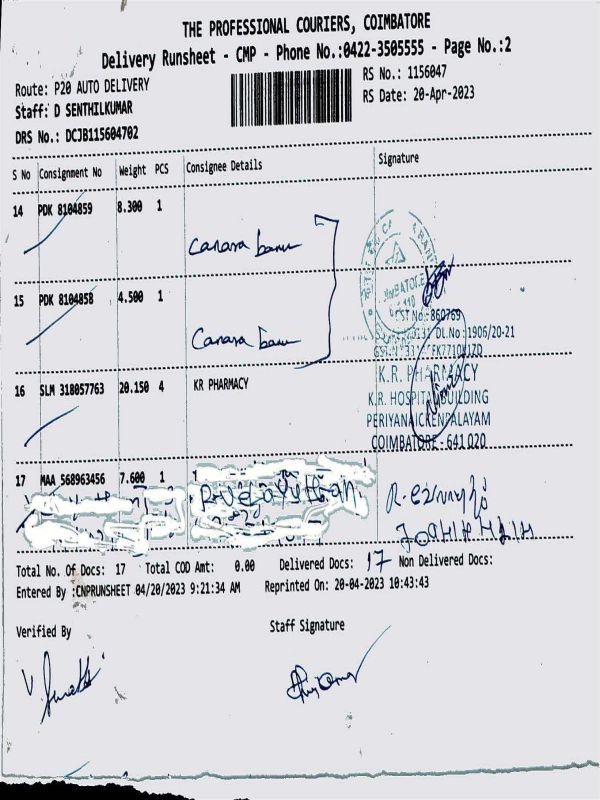 THE PROFESSIONAL COURIERS, COIMBATORE
Delivery Runsheet - CMP - Phone No.:0422-3505555 - Page No.:2
Route: P20 AUTO DELIVERY
RS No.: 1156047
Staff: D SENTHILKUMAR
RS Date: 20-Apr-2023
DRS No.: DCJB115604702
S No Consignment No Weight PCS Consignee Details Signature
14 PDK 8104859 8.300 1
Canara
15 PDK 8104858 4.500 1
Canara
DL.No:1906/20-21
16 SLM 318057763 20.150 4 KR PHARMACY
K.R. PHARMACY
K.R. HOSPITAL BUILDING
PERIYANAICKENPALAYAM
COIMBATORE - 641 020
17 MAA 568963456 7.600 1
Total No. Of Docs: 17 Total COD Amt: 0.00 Delivered Docs: 17 Non Delivered Docs:
Entered By :CNPRUNSHEET 04/20/2023 9:21:34 AM Reprinted On: 20-04-2023 10:43:43
Verified By Staff Signature